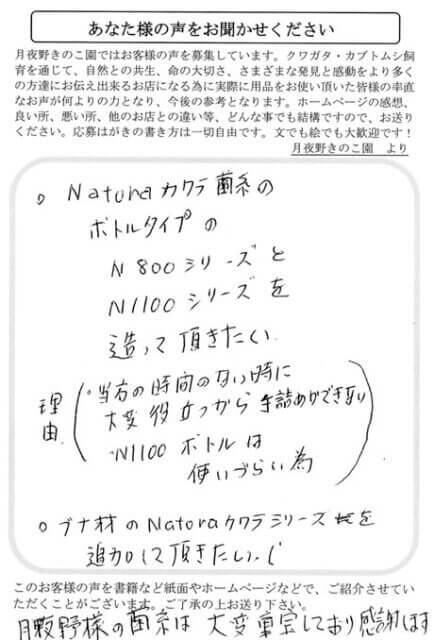 あなた様の声をお聞かせください
月夜野きのこ園ではお客様の声を募集しています。クワガタ・カブトムシ飼
育を通じて、自然との共生、命の大切さ、さまざまな発見と感動をより多く
の方達にお伝え出来るお店になる為に実際に用品をお使い頂いた皆様の率直
なお声が何よりの力となり、今後の参考となります。ホームページの感想、
良い所、悪い所、他のお店との違い等、どんな事でも結構ですので、お送り
ください。応募はがきの書き方は一切自由です。文でも絵でも大歓迎です！
月夜野きのこ園 より
○ Naturaカワラ菌糸の
ボトルタイプの
N800シリーズと
N1100シリーズを
造って頂きたい
理由
・当方の時間のない時に
大変役立つから 手詰めができない
・N1100ボトルは
使いづらい為
○ ブナ材のNaturaカワラシリーズを
追加して頂きたい。
このお客様の声を書籍など紙面やホームページなどで、ご紹介させてい
ただくことがございます。ご了承の上お送り下さい。
月夜野様の菌糸は 大変重宝しており感謝します